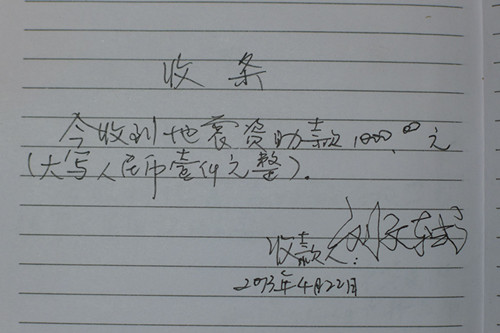 收条
今收到地震资助款1000.00元
(大写人民币壹仟元整).
收款人: 刘
2013年4月22日